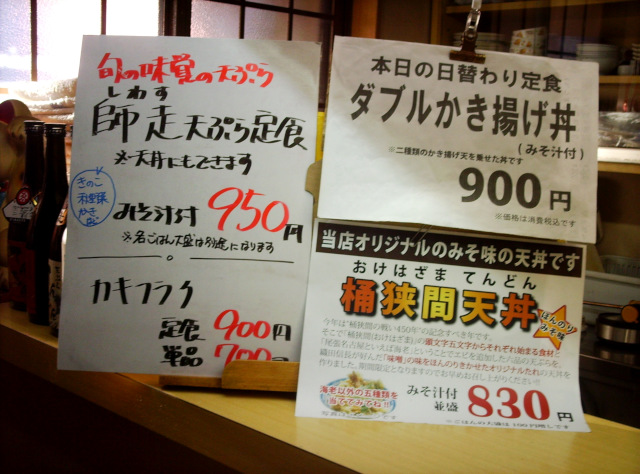 旬の味覚の天ぷら
しわす
師走天ぷら定食
※天丼にもできます
きのこ
かき
など
みそ汁付 950円
※名ごはん大盛は別途になります
カキフライ
定食 900円
単品 700
本日の日替わり定食
ダブルかき揚げ丼
(みそ汁付)
※二種類のかき揚げ天を乗せた丼です
900円
※価格は消費税込です
当店オリジナルのみそ味の天丼です
おけはざま てんどん
桶狭間天丼
ほんのり
みそ味
今年は"桶狭間の戦い450年"の記念すべき年です。
そこで「桶狭間(おけはざま)」の頭文字五文字からそれぞれ始まる食材と
「尾張名古屋といえば海老」ということでエビを追加した六品の天ぷらを、
織田信長が好んだ「味噌」の味をほんのりきかせたオリジナルたれの天丼を
作りました。期間限定となりますのでお早めお召し上がりください!!
海老以外の五種類を
当ててみてね!!
みそ汁付
並盛 830円
※ごはんの大盛は100円増しです